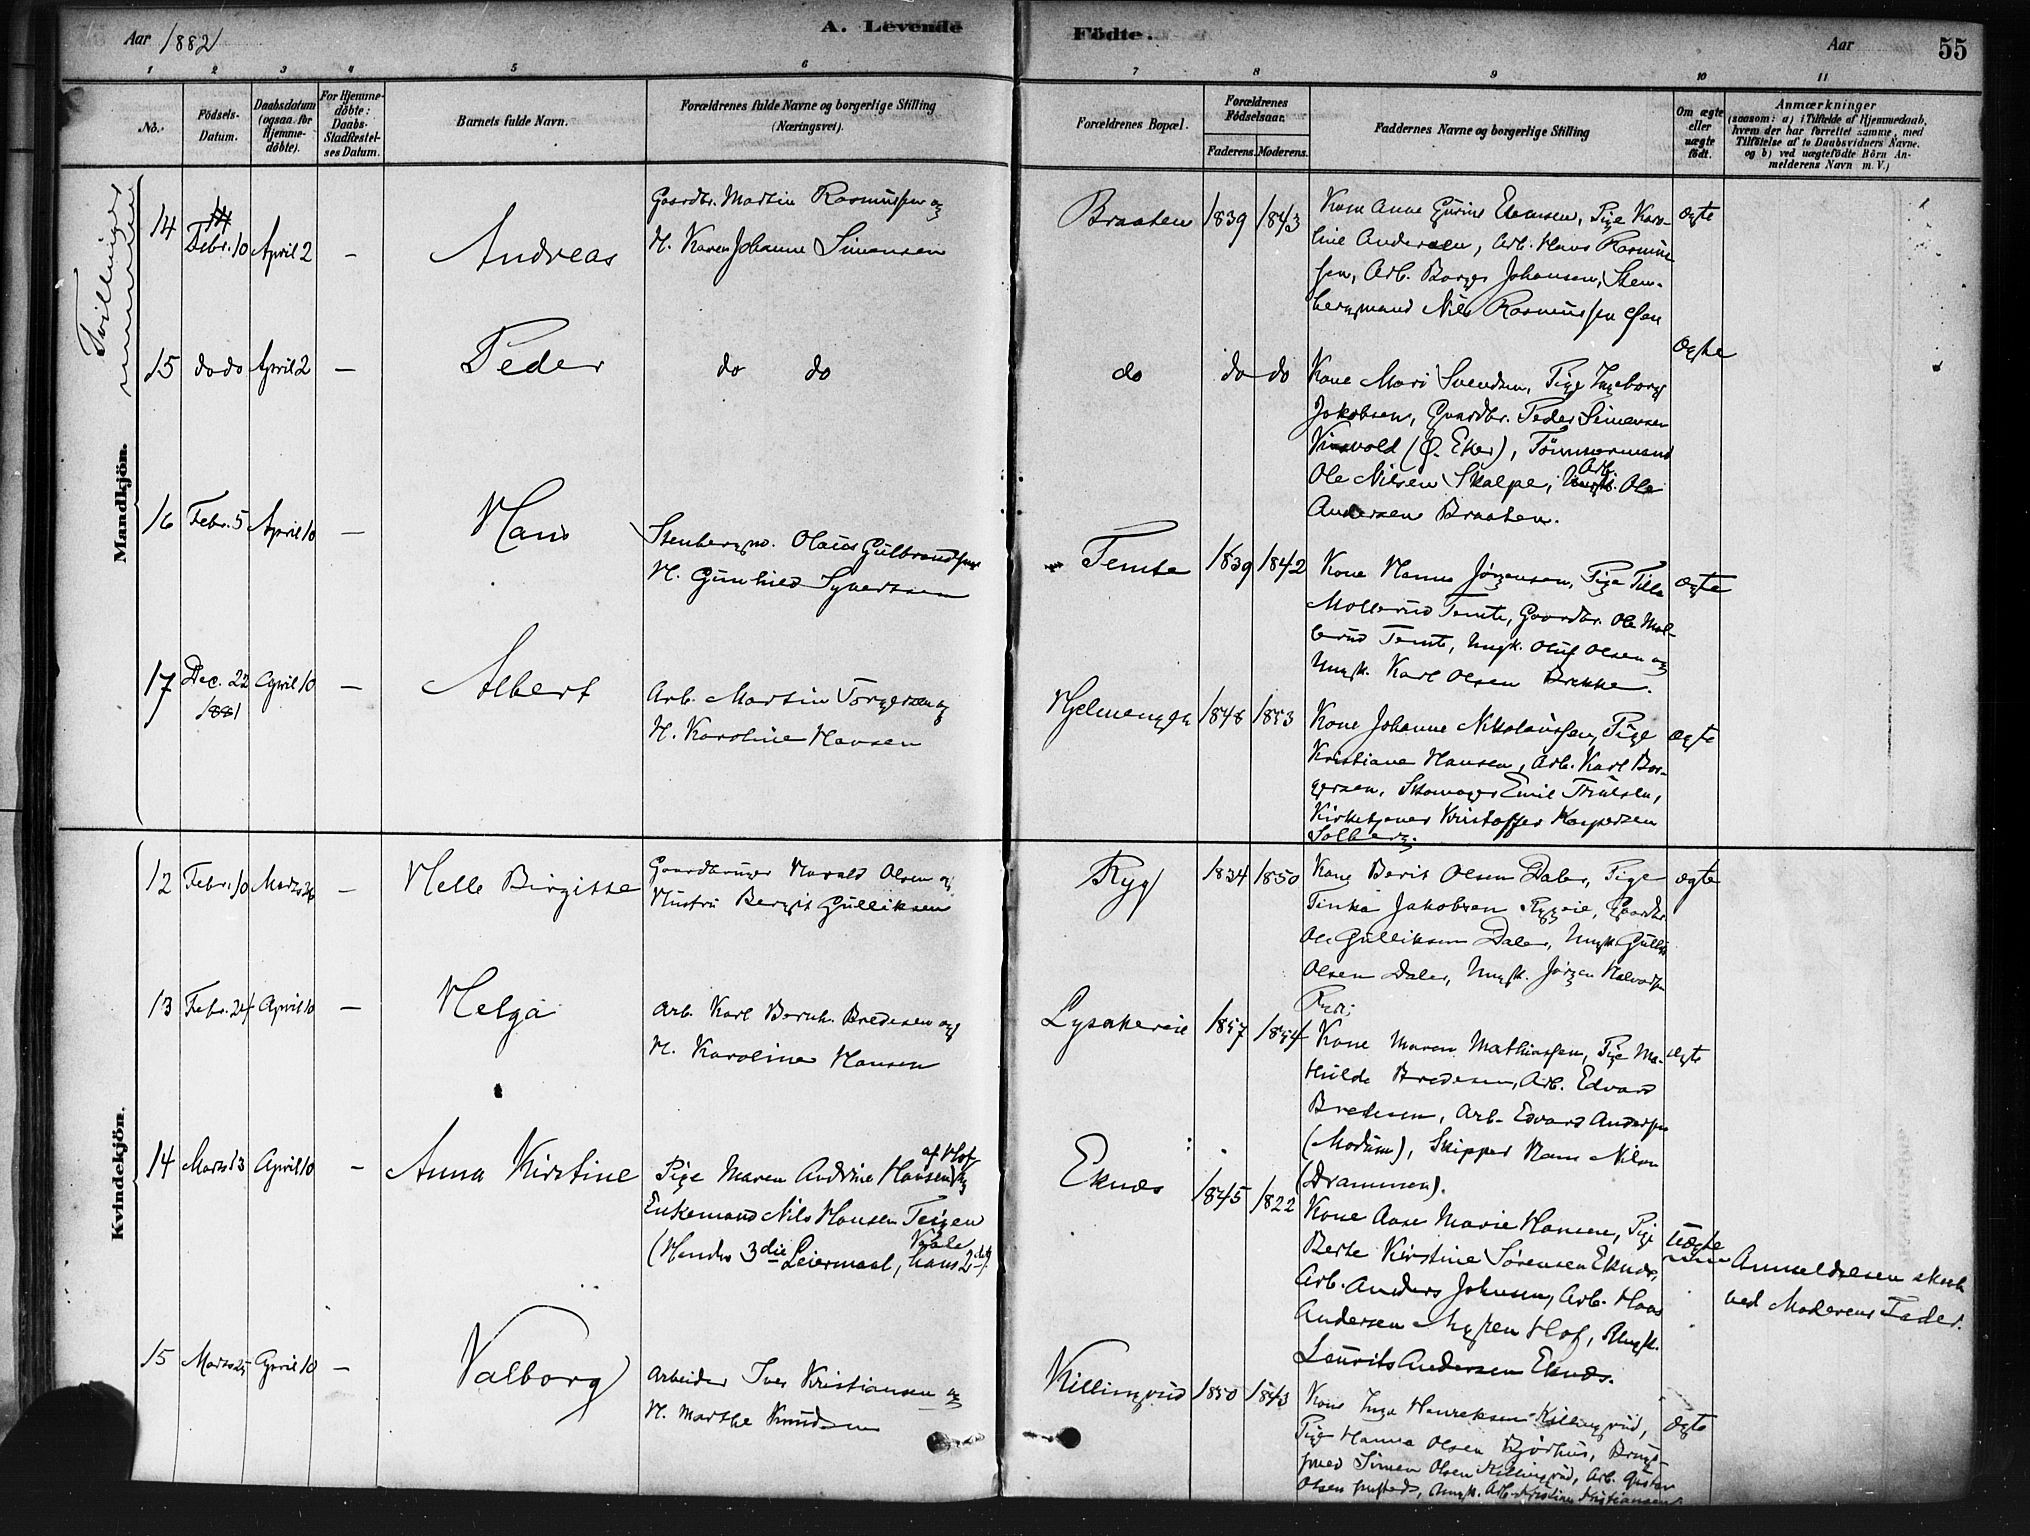 Aar 1882
A. Levende Födte.
Aar
55
1 2 3 4 5 6 7 8 9 10 11
No.
Födsels-Datum.
Daabsdatum (ogsaa for Hjemme-döbte).
For Hjemme-döbte: Daabs-Stadfæstel-ses Datum.
Barnets fulde Navn.
Forældrenes fulde Navne og borgerlige Stilling (Næringsvei).
Forældrenes Bopæl.
Forældrenes Födselsaar.
Faderens. Moderens.
Faddernes Navne og borgerlige Stilling
Om ægte eller uægte födt.
Anmærkninger
(saasom: a) i Tilfælde af Hjemmedaab, hvem der har forrettet samme, med Tilföielse af to Daabsvidners Navne. og b) ved uægtefödte Börn An-melderens Navn m. V.)
Tvillinger
Mandkjön.
14 Febr. 10 April 2 — Andreas
Gaardbr. Martin Rasmussen og
H. Karen Johanne Simensen
Braaten 1839 1843
Kone Anne Gurine Evensen, Pige Karo-
line Andersen, Arb. Hans Rasmus-
sen, Arb. Borger Johansen, Sten-
bergmand Nils Rasmussen
ægte
15 do do April 2 — Peder
do do
do do do
Kone Mari Svendsen, Pige Ingeborg
Jakobsen, Gaardbr. Peder Simensen
(Ø. Eker), Tømmermand
Ole Nilsen Skalpe, Arb. Ole
Andersen Braaten.
ægte
16 Febr. 5 April 10 — Hans
Stenbergm. Olaus Gulbrandsen
H. Gunhild Syversen
Temte 1839 1842
Kone Hanna Jørgensen, Pige Tilla
Mollerud Temte, Gaardbr. Ole Mol-
lerud Temte, Ungk. Oluf Olsen og
Ungk. Karl Olsen Brekke.
ægte
17 Dec. 22 1881 April 10 — Albert
Arb. Martin Torgersen og
H. Karoline Hansen
Hjelmengen 1848 1853
Kone Johanne Nikolaussen, Pige
Kristiane Hansen, Arb. Karl Bor-
gersen, Skomager Emil Trulsen,
Kirketjener Kristoffer Kaspersen
Solberg.
ægte
Kvindekjön.
12 Febr. 10 Marts 26 — Helle Birgitte
Gaardbruger Harald Olsen og
Hustru Bergit Gulliksen
Ryg 1834 1850
Kone Berit Olsen Daler, Pige
Tinka Jakobsen Rygeie, Gaardbr.
Ole Gulliksen Daler, Ungk. Gullik
Olsen Daler, Ungk. Jørgen Halvorsen
ægte
13 Febr. 24 April 10 — Helga
Arb. Karl Bernh. Bredesen og
H. Karoline Hansen
Lysakereie 1857 1854
Kone Maren Mathiassen, Pige Ma-
thilde Bredesen, Arb. Edvard
Bredesen, Arb. Edvard Andersen
(Modum), Skipper Hans Nilsen
(Drammen).
ægte
14 Marts 13 April 10 — Anna Kirstine
Pige Maren Andrine Hansen af Hof og
Enkemand Nils Hansen Teigen
Vaale
(Hendes 3die Leiermaal, hans 2det)
Eknæs 1845 1822
Kone Aase Marie Hansen, Pige
Berte Kirstine Sørensen Eknæs,
Arb. Anders Johnsen, Arb. Hans
Andersen Myren Hof, Ungk.
Laurits Andersen Eknæs.
uægte
Anmeldelsen skeet
ved Moderens Fader.
15 Marts 25 April 10 — Valborg
Arbeider Iver Kristiansen og
H. Marthe Knudsen
Killingrud 1850 1843
Kone Inga Henriksen Killingrud,
Pige Hanna Olsen Bjørhus, Brugs-
smed Simen Olsen Killingrud, Arb. Gustav
Olsen, Ungk. Arb. Kristian Kristiansen
ægte